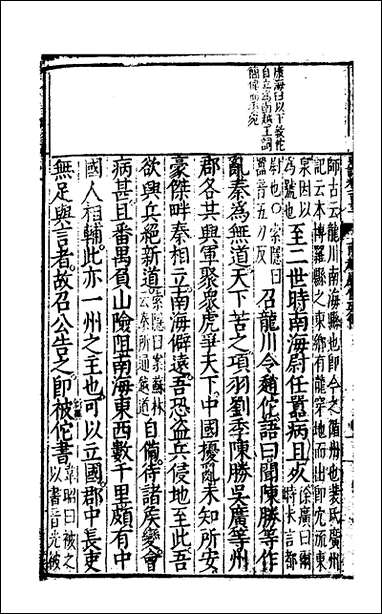 康海曰以下敘佗
自立爲南越王詞
簡俾而
師古云龍川南海縣也即今之循州也裴氏廣州
記云本博羅縣之東鄉有龍穿地而出即穴流東
泉因以
爲號也
至二世時南海尉任囂病且死
徐廣曰爾
時未言都
尉也○索隱曰
囂音五刀反
召龍川令趙佗語曰聞陳勝等作
亂秦爲無道天下苦之項羽劉季陳勝吳廣等州
郡各共興軍聚衆虎爭天下中國擾亂未知所安
豪傑畔秦相立南海僻遠吾恐盜兵侵地至此吾
欲興兵絕新道
索隱曰案蘇林
云秦所通越道
自備待諸矦變會
病甚且番禺負山險阻南海東西數千里頗有中
國人相輔此亦一州之主也可以立國郡中長吏
無足與言者故召公告之即被佗書
韋昭曰被之
以書音光被